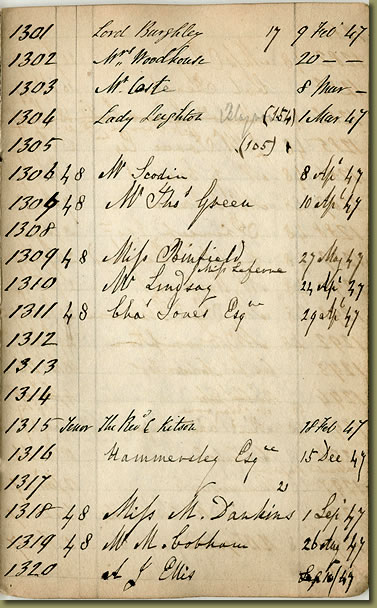 1301 Lord Burghley 17 9 Feb 47
1302 Mrs Woodhouse 20 — —
1303 Mr Caste 8 Mar —
1304 Lady Leighton (154) 1 Mar 47
1305 (105)
1306 48 Mr Scodin 8 Apl 47
1306 48 Mr Thos Green 10 Apl 47
1308
1309 48 Miss Binfield 27 May 47
Miss Lefevre
1310 Mr Lindsay 24 Apl 47
1311 48 Chas Jones Esqre 29 Apl 47
1312
1313
1314
1315 Tenor The Revd C Kitson 18 Feb 47
1316 Hammersley Esqre 15 Dec 47
1317
2
1318 48 Miss M. Dawkins 1 Sep 47
1319 48 Mr M. Cobham 26 Aug 47
1320 A J Ellis Sep 47